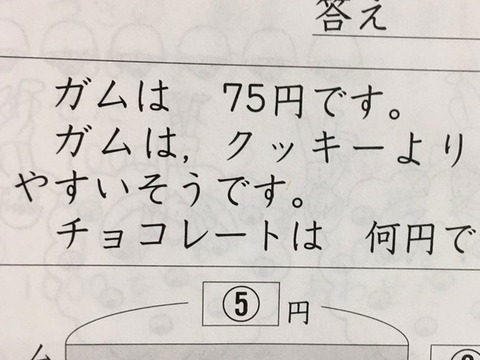 答え
ガムは 75円です。
ガムは,クッキーより
やすいそうです。
チョコレートは 何円で
⑤ 円
ム